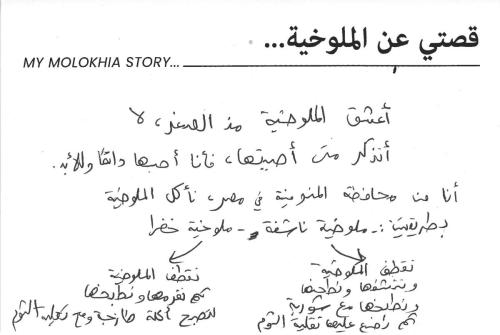 قصتي عن الملوخية...
MY MOLOKHIA STORY...
أعشق الملوخية منذ الصغر، لا
أتذكر متى أحببتها، فأنا أحبها دائمًا وللأبد.
أنا من محافظة المنوفية في مصر، نأكل الملوخية
بطريقتين:- ملوخية ناشفة - ملوخية خضرا
نقطف الملوخية
وننشفها ونطحنها
ونطبخها مع شوربة
ثم نضع عليها تقلية الثوم
نقطف الملوخية
ثم نفرمها ونطبخها
لتصبح أكلة طازجة ومع تقلية الثوم